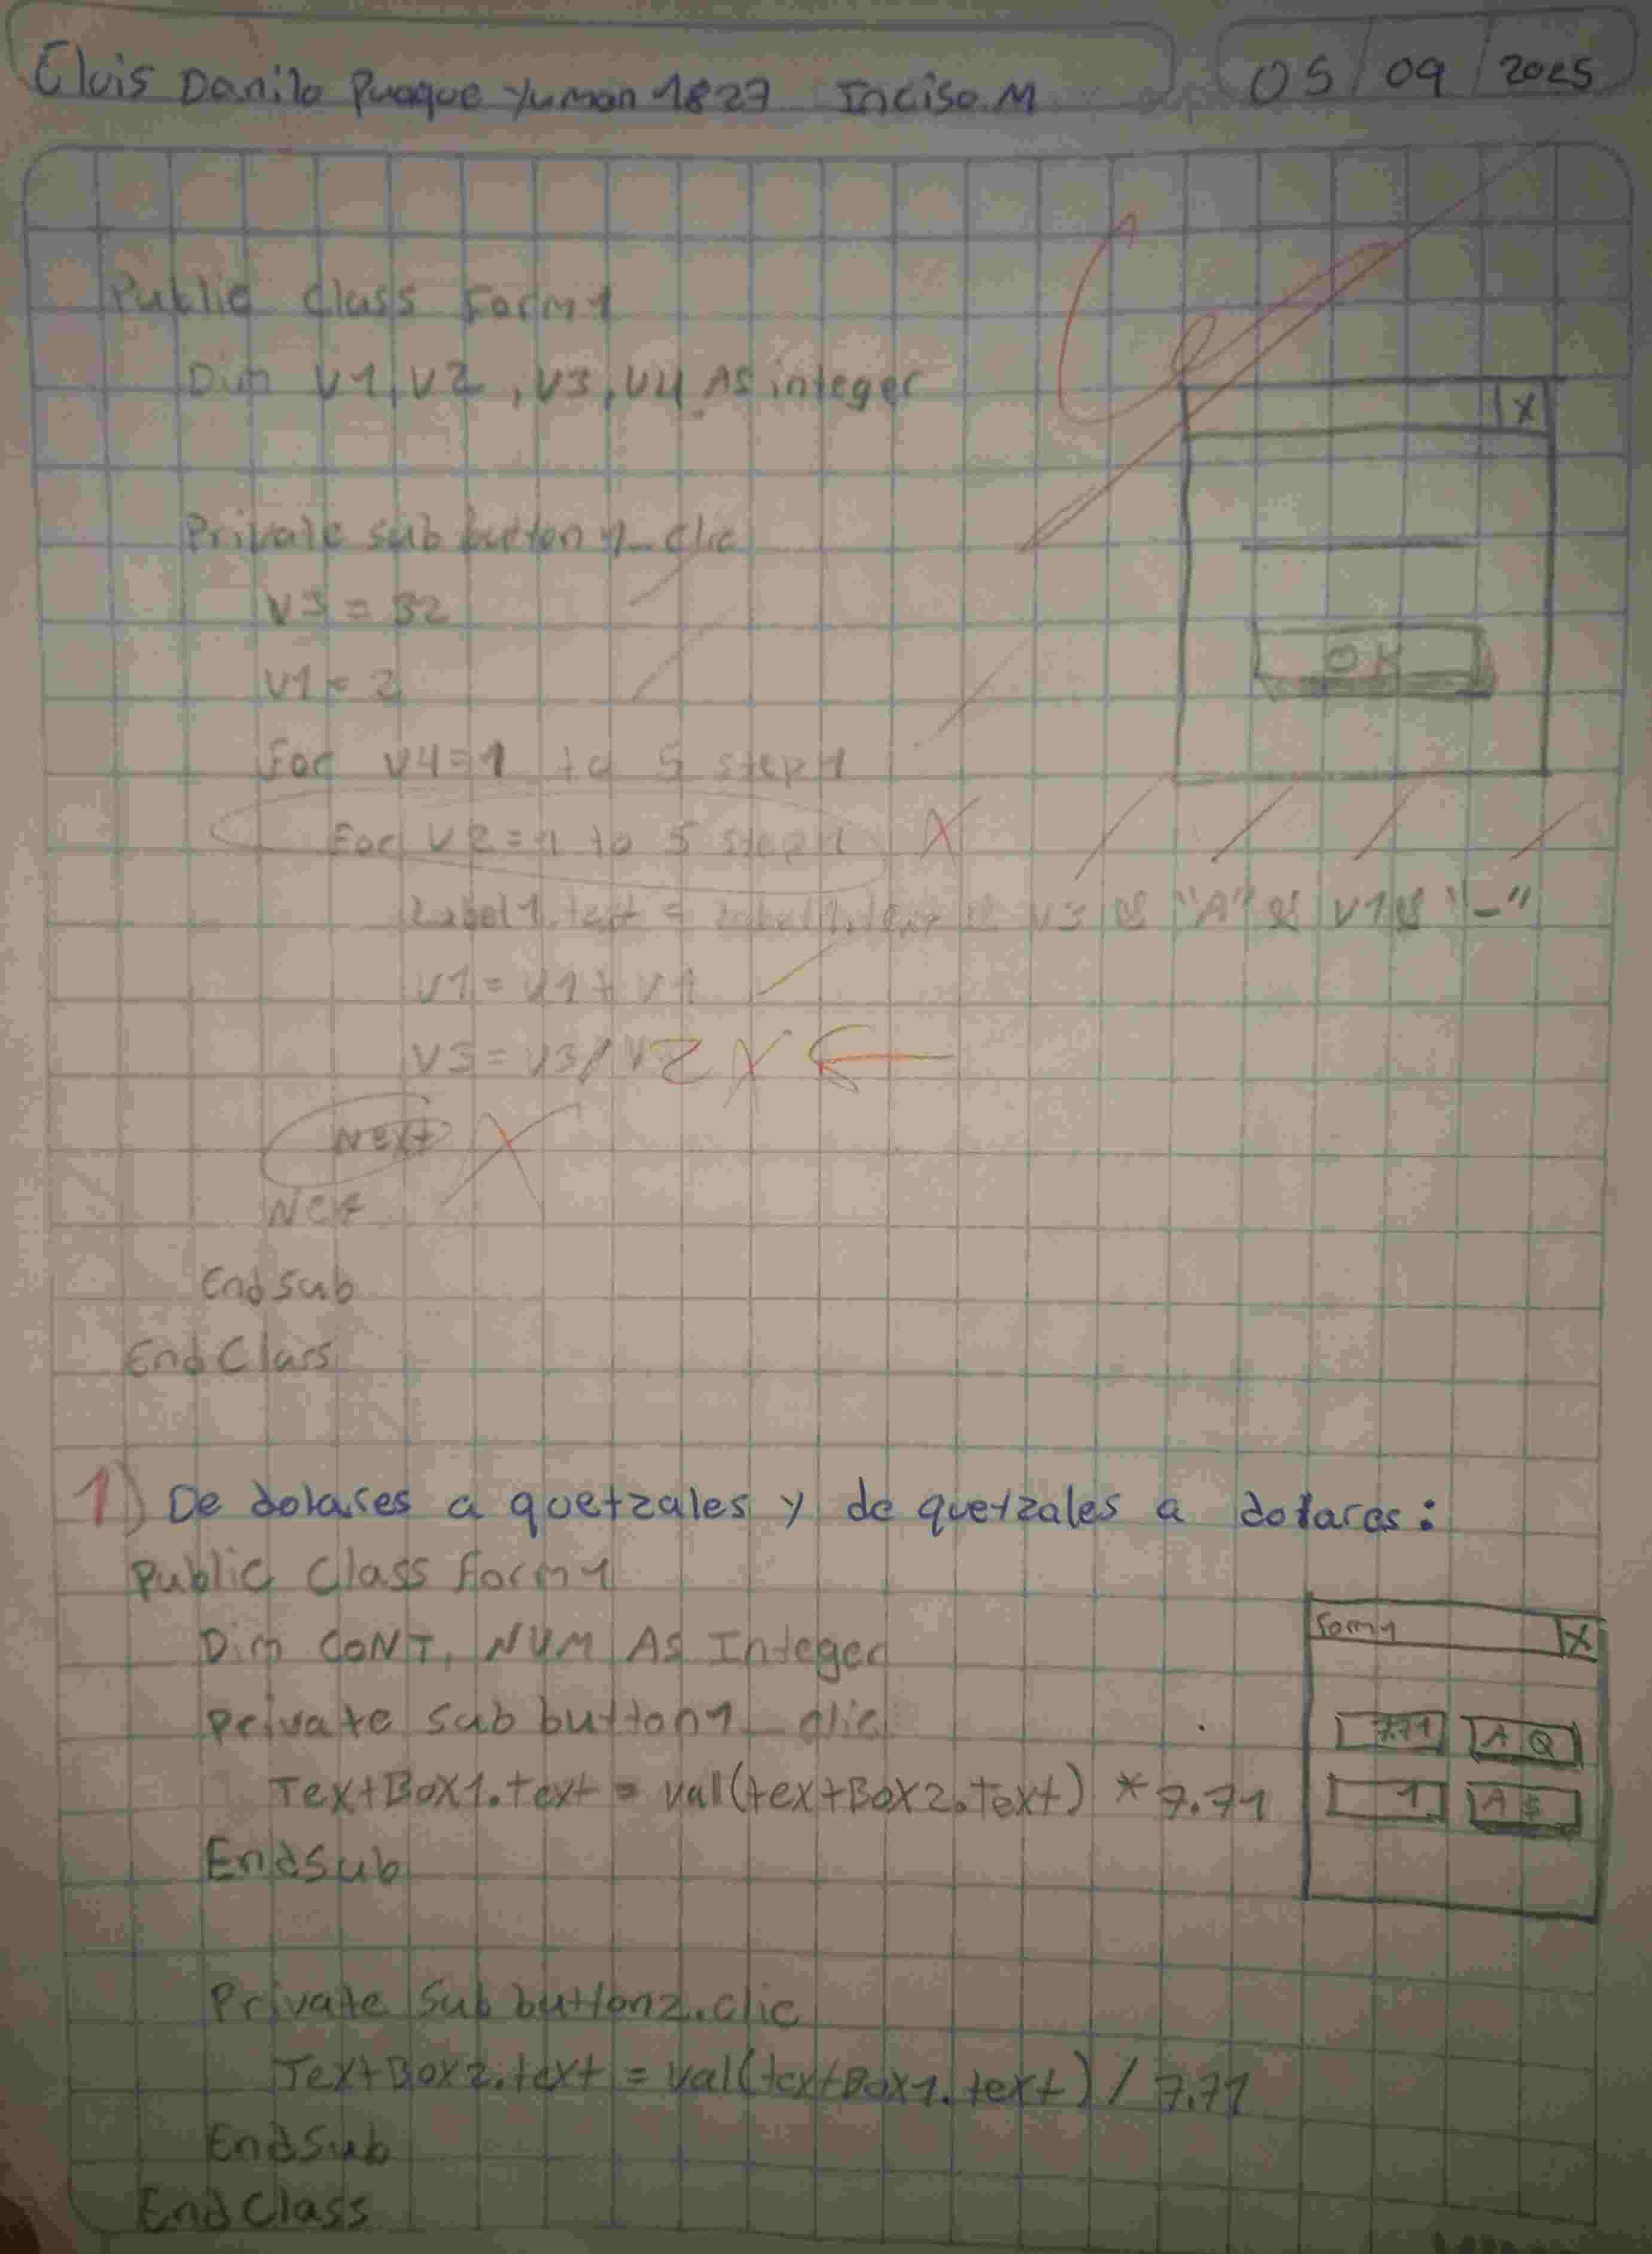 Elvis Danilo Puaque Yuman 1827 Inciso.M
05/09/2025
Public Class Form1
Dim V1, V2, V3, V4 As integer
X
Private sub button1_clic
V3 = 32
V1 = 2
OK
For V4=1 to 5 step 1
For V2=1 to 5 step 1
Label1.text = Label1.text & V3 & "A" & V1 & "-"
V1 = V1 + V1
V3 = V3/ 2
Next
Nex
End Sub
End Class
1) De dolares a quetzales y de quetzales a dolares:
Public Class Form1
Dim CONT, NUM As Integer
Form1 X
private sub button1_clic
7.71 A Q
TextBox1.text = val(textBox2.Text) * 7.71
1 A $
EndSub
Private Sub button2.clic
TextBox2.text = val(textBox1.text) / 7.71
EndSub
EndClass